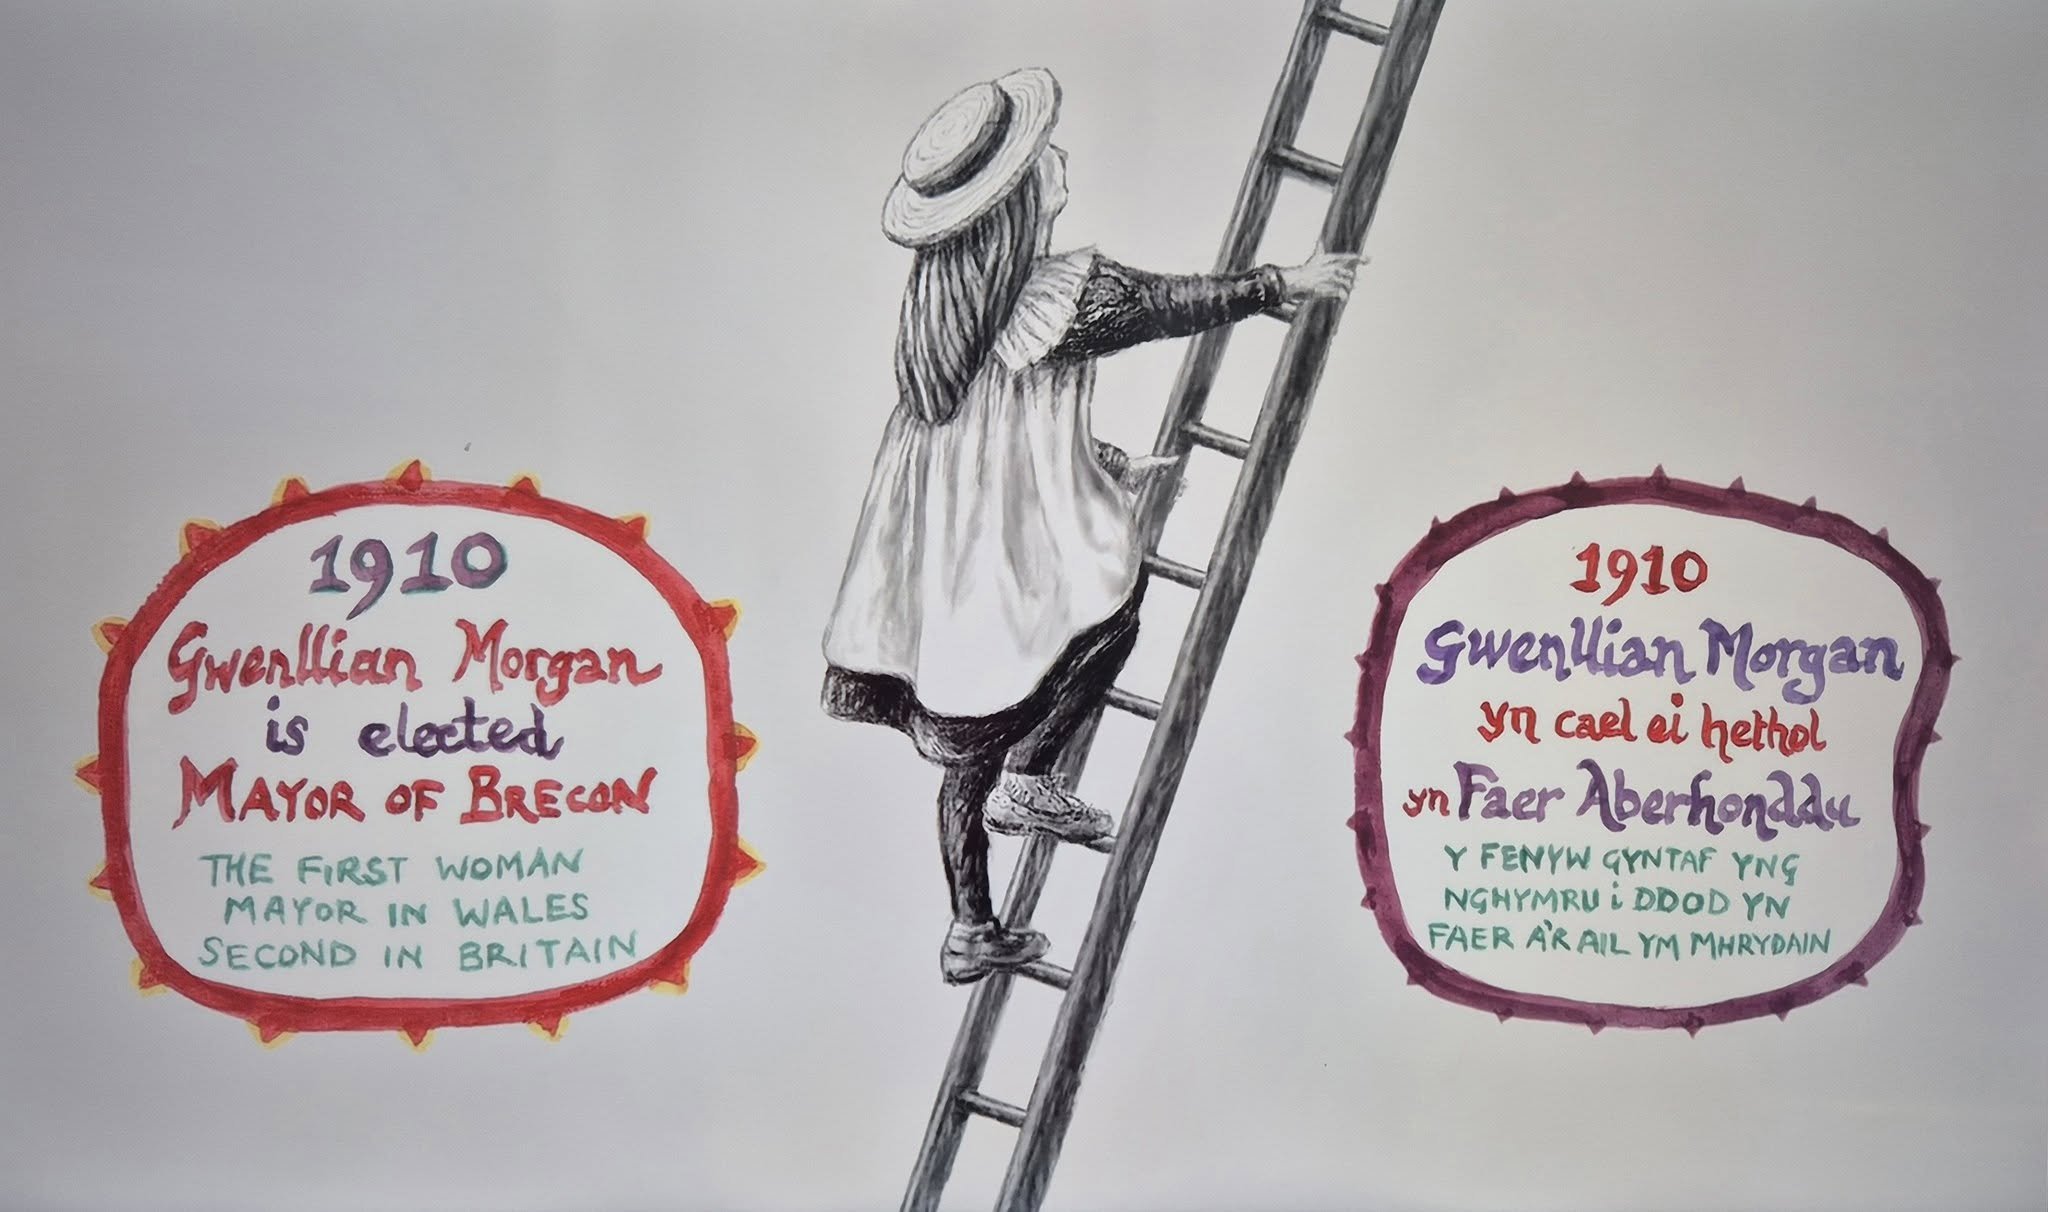 1910
Gwenllian Morgan
is elected
MAYOR OF BRECON
THE FIRST WOMAN
MAYOR IN WALES
SECOND IN BRITAIN
1910
Gwenllian Morgan
yn cael ei hethol
yn Faer Aberhonddu
Y FENYW GYNTAF YNG
NGHYMRU i DDOD YN
FAER A'R AIL YM MHRYDAIN